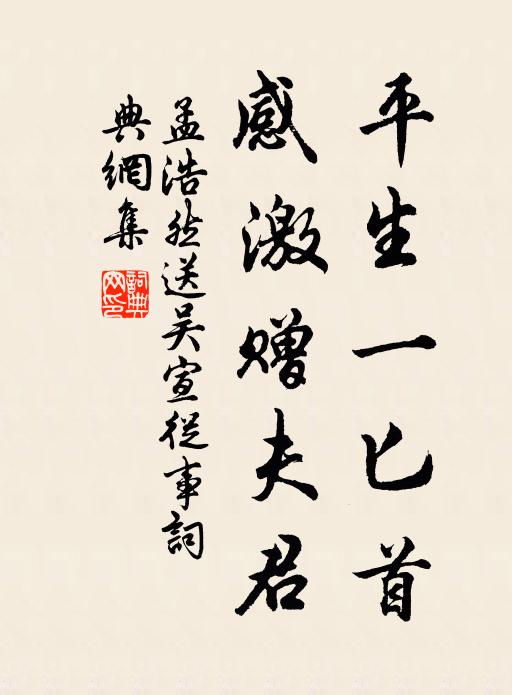 平生一匕首
感激赠夫君
孟浩然送吴宣從事詞
典網集
詞典
网印